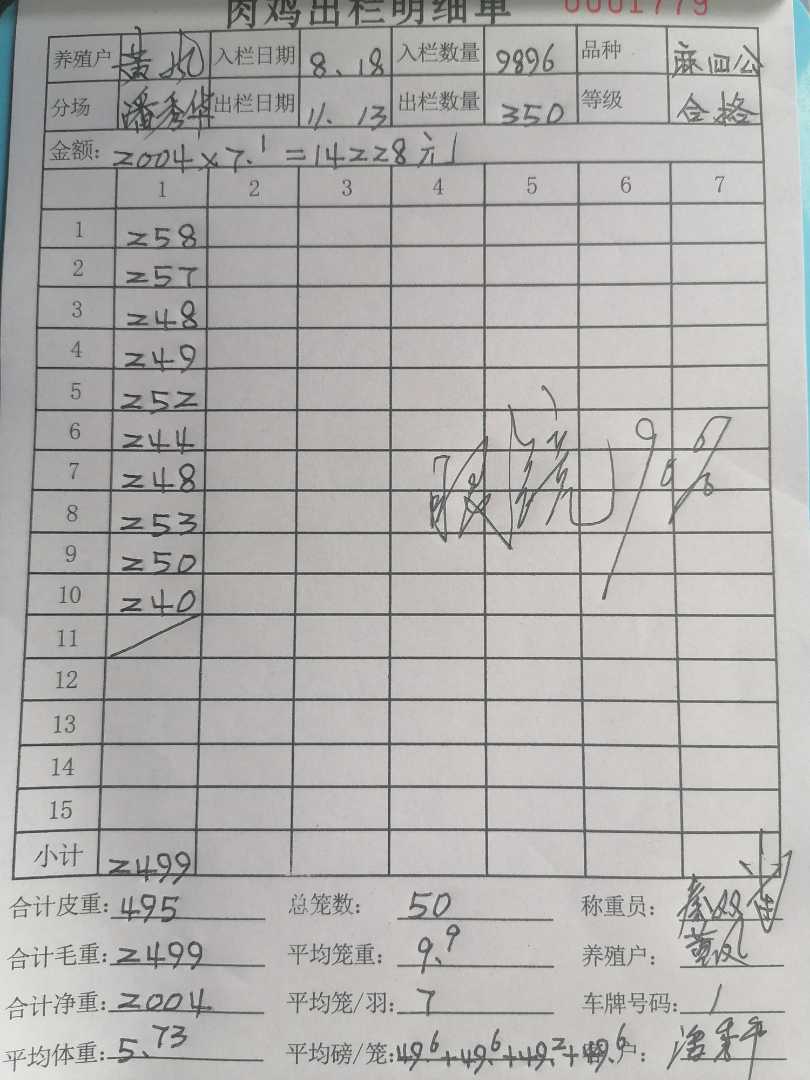 肉鸡出栏明细单 0001779
养殖户 黄凤 入栏日期 8.18 入栏数量 9896 品种 麻四公
分场 潘秀华 出栏日期 11.13 出栏数量 350 等级 合格
金额: 2004×7.1=14228元
1 2 3 4 5 6 7
1 258
2 257
3 248
4 249
5 252
6 244
7 248
8 253
9 250
10 240
11
12
13
14
15
小计 2499
合计皮重: 495 总笼数: 50 称重员:
合计毛重: 2499 平均笼重: 9.9 养殖户: 黄凤
合计净重: 2004 平均笼/羽: 7 车牌号码: /
平均体重: 5.73 平均磅/笼: 49.6+49.6+49.2+49.6 户: